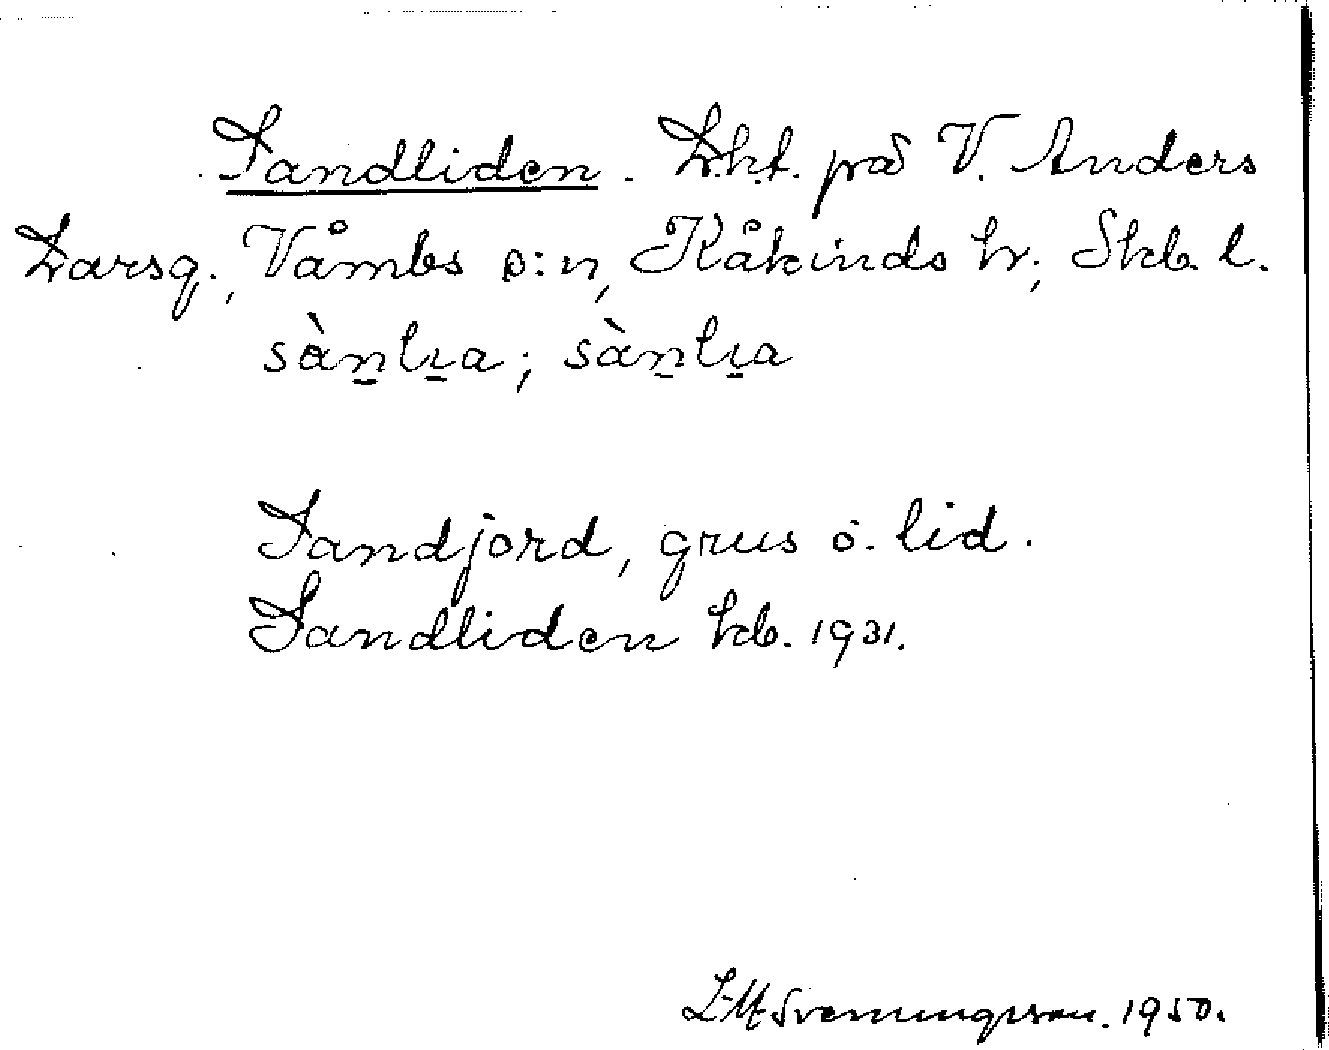 Sandliden. Lht. på V. Anders
Larsg., Våmbs s:n, Kåkinds hr, Skb. l.
sàn̠lɪ̠a; sàn̠lɪ̠a
Sandjord, grus o. lid.
Sandliden kb. 1931.
L-M Svenungsson. 1950.